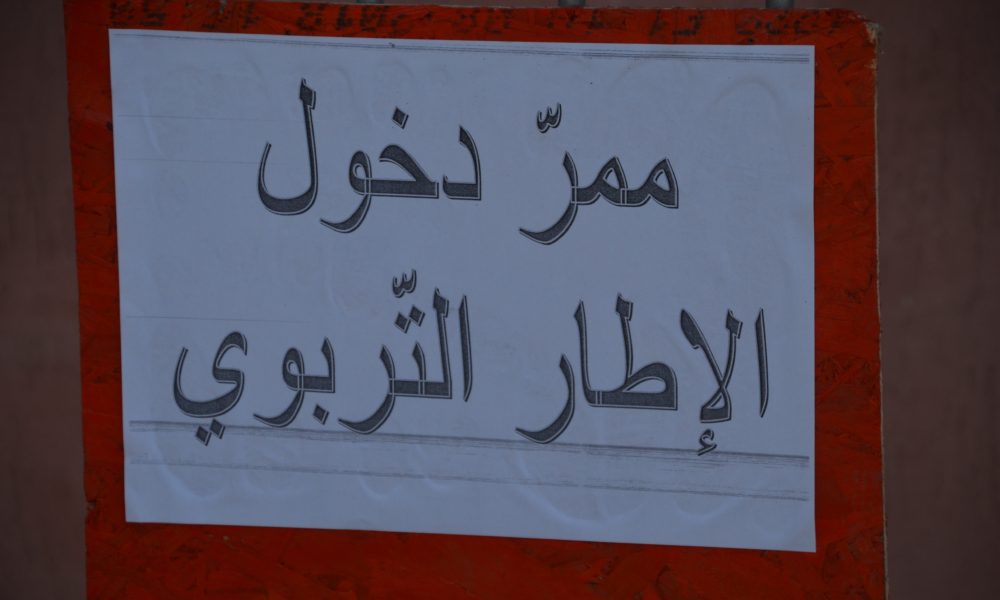 ممرّ دخول
الإطار التّربوي